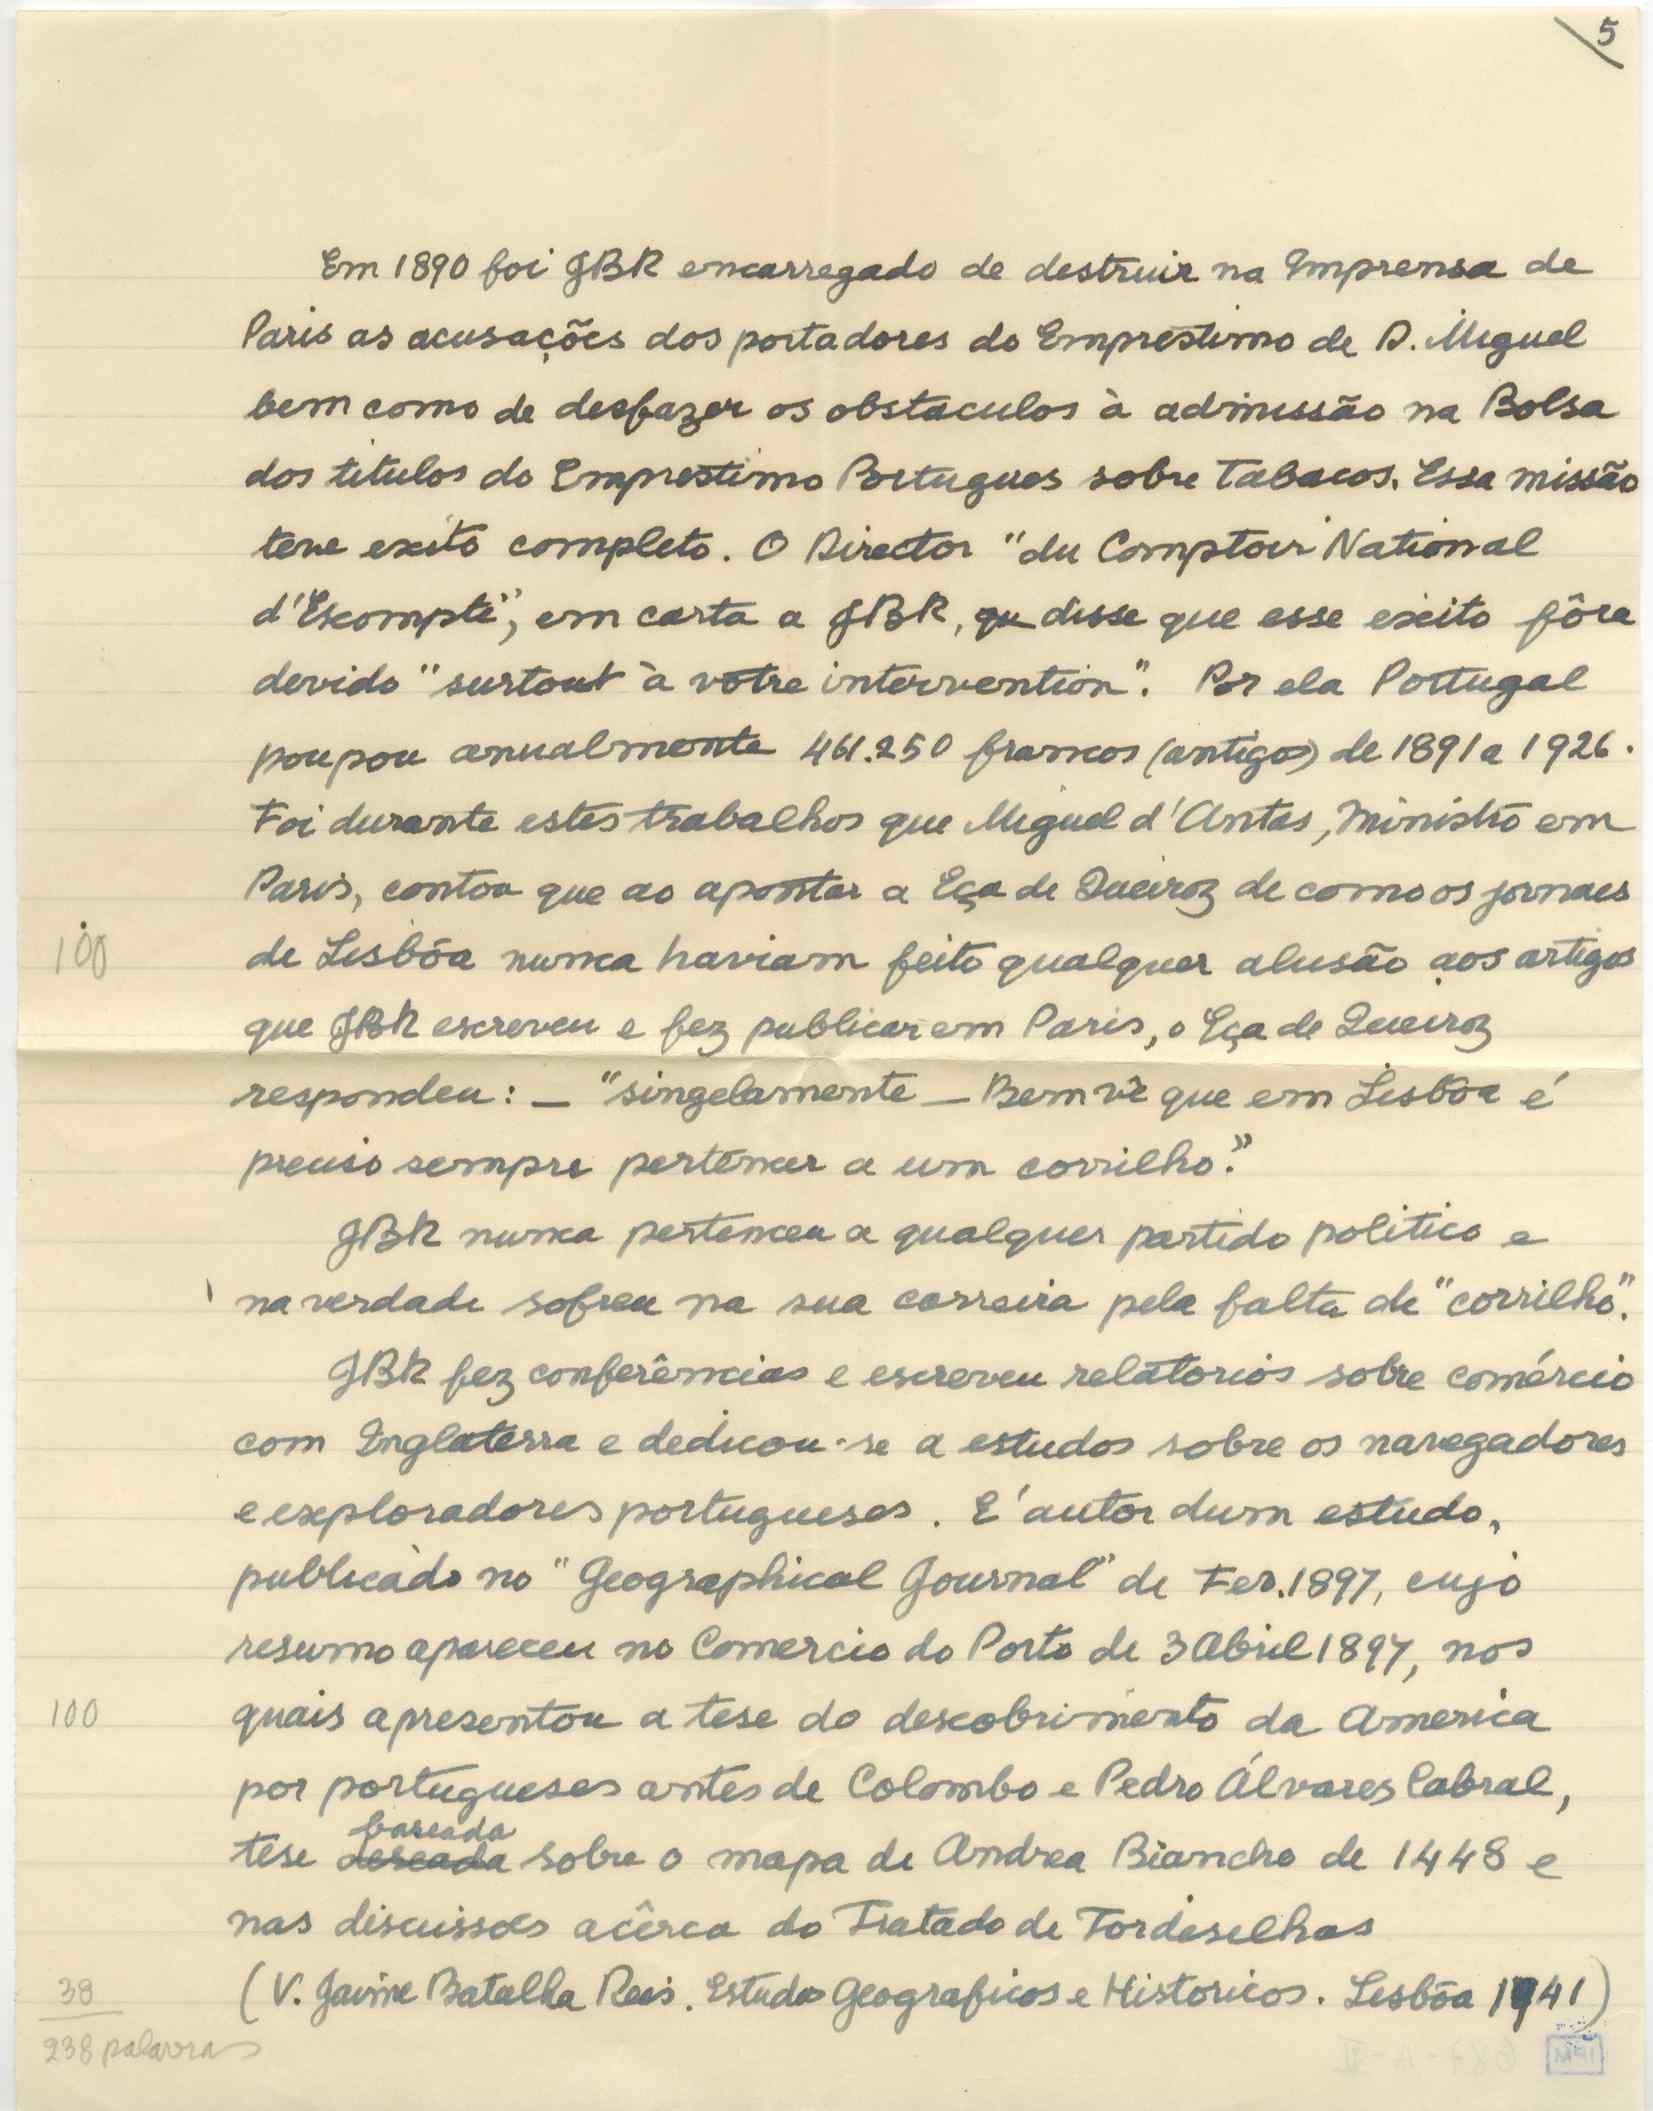 5
Em 1890 foi JBR encarregado de destruir na Imprensa de
Paris as acusações dos portadores do Emprestimo de D. Miguel
bem como de desfazer os obstaculos à admissão na Bolsa
dos titulos do Emprestimo Portugues sobre Tabacos. Essa missão
teve exito completo. O Director "du Comptoir National
d'Escompte", em carta a JBR, qu disse que esse exito fôra
devido "surtout à votre intervention". Por ela Portugal
poupou anualmente 461.250 francos (antigos) de 1891 a 1926.
Foi durante estes trabalhos que Miguel d'Antas, Ministro em
Paris, contou que ao apontar a Eça de Queiroz de como os jornaes
100
de Lisbôa nunca haviam feito qualquer alusão aos artigos
que JBR escreveu e fez publicar em Paris, o Eça de Queiroz
respondeu: — "singelamente — Bem vê que em Lisbôa é
preciso sempre pertencer a um corrilho."
JBR nunca pertenceu a qualquer partido politico e
na verdade sofreu na sua carreira pela falta de "corrilho".
JBR fez conferências e escreveu relatorios sobre comércio
com Inglaterra e dedicou-se a estudos sobre os navegadores
e exploradores portugueses. E' autor dum estudo,
publicado no "Geographical Journal" de Fev. 1897, cujo
resumo apareceu no Comercio do Porto de 3 Abril 1897, nos
100
quais apresentou a tese do descobrimento da America
por portugueses antes de Colombo e Pedro Álvares Cabral,
baseada
tese sobre o mapa de Andrea Biancho de 1448 e
nas discussões acêrca do Tratado de Tordesilhas
38
(V. Jaime Batalha Reis. Estudos Geograficos e Historicos. Lisbôa 1941)
238 palavras